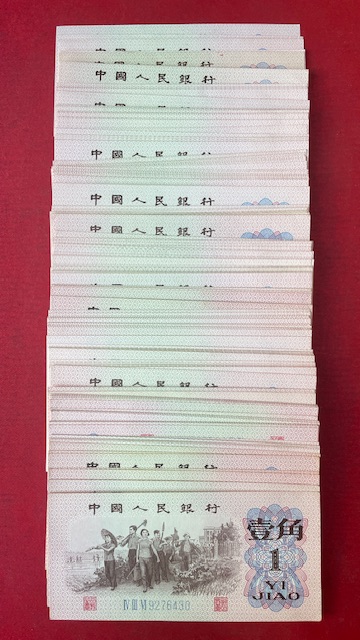 中國人民銀行
中國人民銀行
中國人民銀行
中國人民銀行
中國人民銀行
中國人民銀行
中國人民銀行
中國人民銀行
中國人民銀行
中國人民銀行
壹角
1
YI
JIAO
IV III VI 9276430